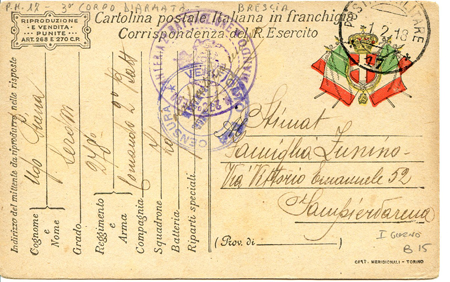 P.M. 12 3° CORPO D'ARMATA BRESCIA
RIPRODUZIONE
E VENDITA
PUNITE
ART. 268 E 270 C.P.
Cartolina postale Italiana in franchigia
Corrispondenza del R. Esercito
POSTA MILITARE
1.2.18
VERIFICATO
CENSURA
Indirizzo del mittente da riprodursi nelle risposte
Cognome
e
Nome
Ugo
Grado
Reggimento
e
Arma
278°
Compagnia
Comando 2° Batt
Squadrone
Batteria
Riparti speciali
Stimat
Famiglia
Via Vittorio Emanuele 52
Sampierdarena
(Prov. di)
I GUERRA
B 15
MERIDIONALI - TORINO